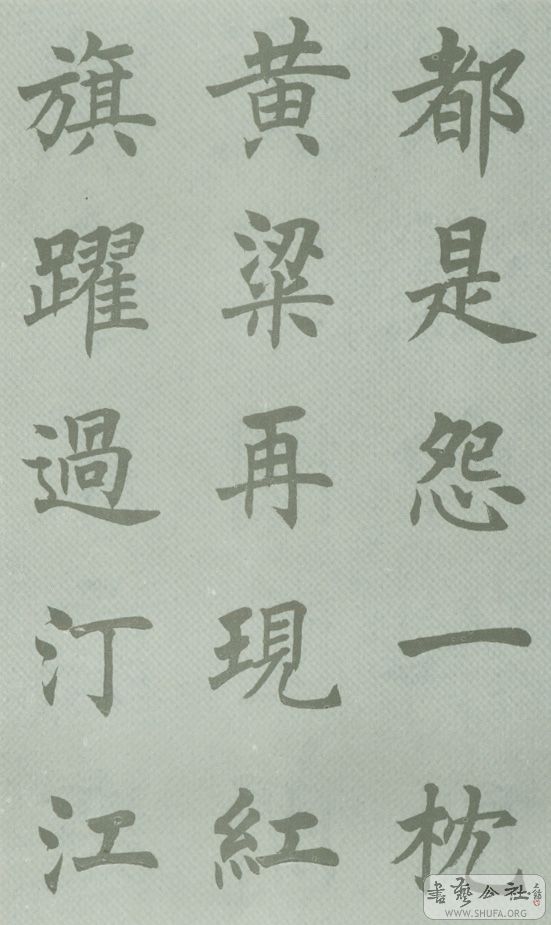 都是怨一枕
黄粱再現紅
旗躍過汀江
書藝公社
WWW.SHUFA.ORG